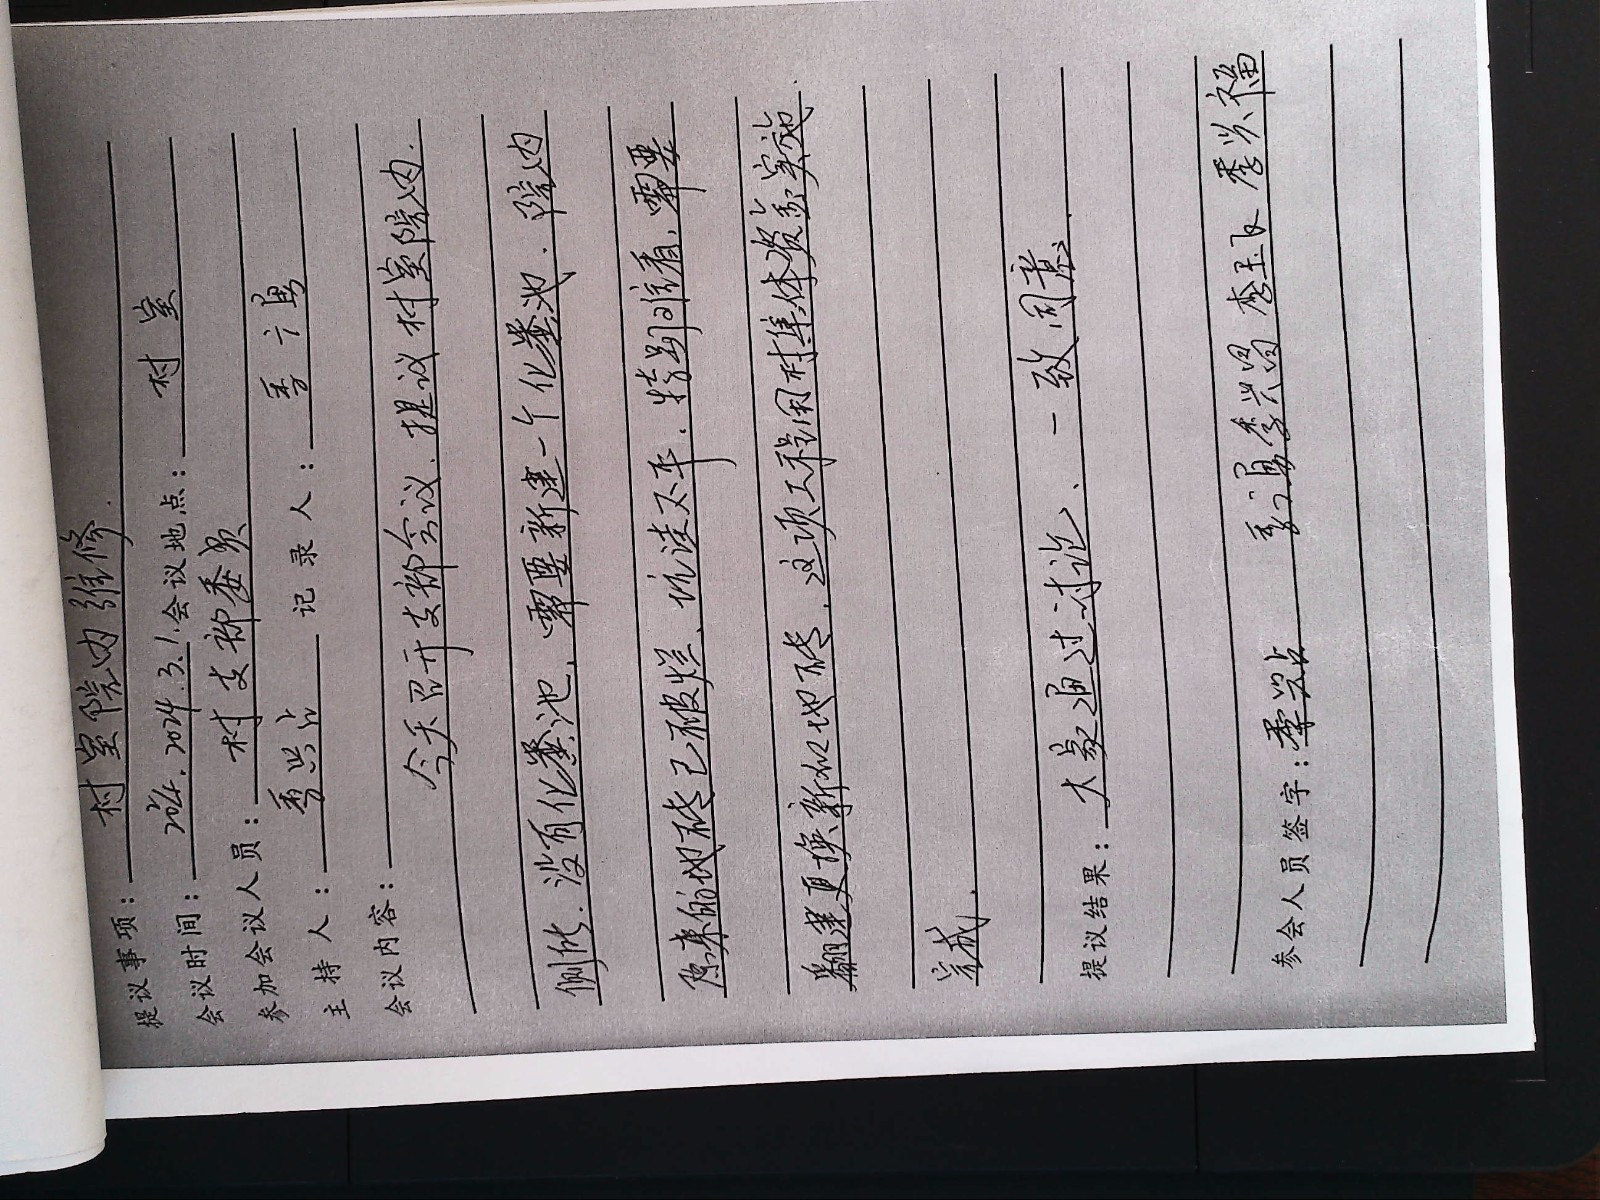 提议事项：村室院内维修.
会议时间：2024.2024.3.1.会议地点：村室
参加会议人员：村支部委员
主持人：季兴占 记录人：季广勇
会议内容：
今天召开支部会议、提议村室院内.
侧所.没有化粪池、需要新建一个化粪池.院内
原来的地砖已破烂、坑洼不平.特别难看,需要
翻建更换新的地砖.这项工程用村集体资金实施.
完成.
提议结果：大家通过讨论、一致同意.
参会人员签字：季兴占 季广勇 季兴昌 李玉 季兴福